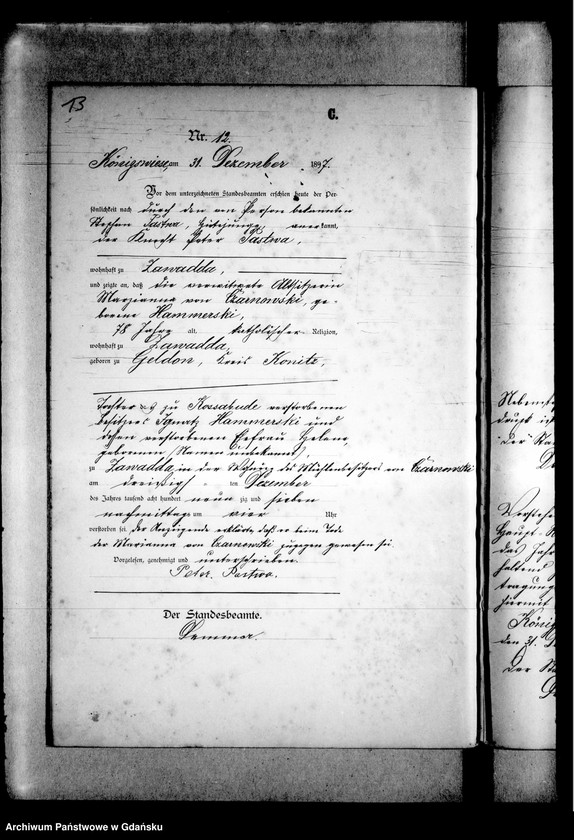 13
C.
Nr. 12.
Königswiese, am 31. Dezember 1897.
Vor dem unterzeichneten Standesbeamten erschien heute der Per-
sönlichkeit nach durch den von Person bekannten
Stephan Pastwa, Hütejunge, anerkannt,
der Knecht Peter Pastwa,
wohnhaft zu Zawadda,
und zeigte an, daß die verwitwete Altsitzerin
Marianna von Czarnowski, ge-
borene Hammerski,
78 Jahre alt, katholischer Religion,
wohnhaft zu Zawadda,
geboren zu Geldon, Kreis Konitz,
Tochter des zu Kossabude verstorbenen
Besitzers Ignatz Hammerski und
dessen verstorbenen Ehefrau Helene,
geborenen (Namen unbekannt),
zu Zawadda, in der Wohnung des Mühlenbesitzers von Czarnowski
am dreißigsten Dezember
des Jahres tausend acht hundert neun zig und sieben
nachmittags um vier Uhr
verstorben sei. Der Anzeigende erklärte, daß er beim Tode
der Marianna von Czarnowski zugegen gewesen sei.
Vorgelesen, genehmigt und unterschrieben.
Peter Pastwa.
Der Standesbeamte.
Nebenst
der Sta
Vorstehe
Haupt-R
das Jahr
haltend
tragung
hiermit
König
den 31. D
Der St
Archiwum Państwowe w Gdańsku